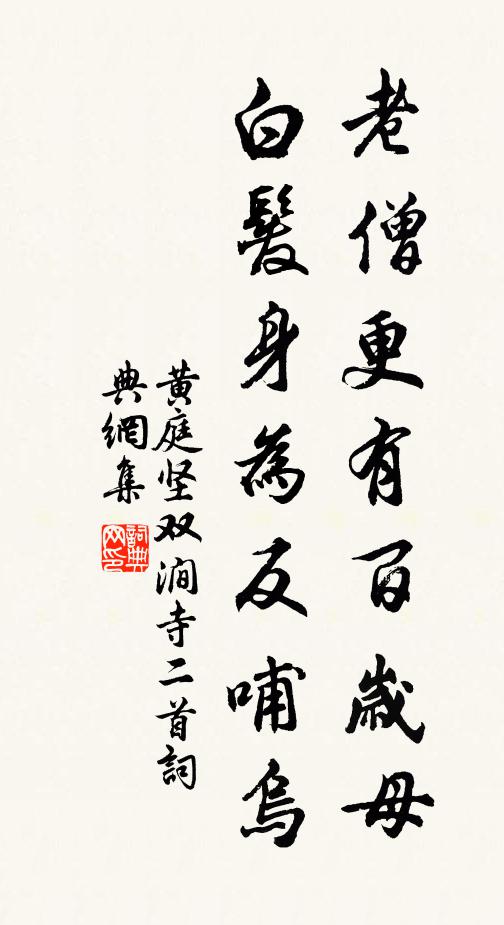 老僧更有百歲母
白髮身為反哺烏
黄庭坚双澗寺二首詞
典網集
詞典
网印